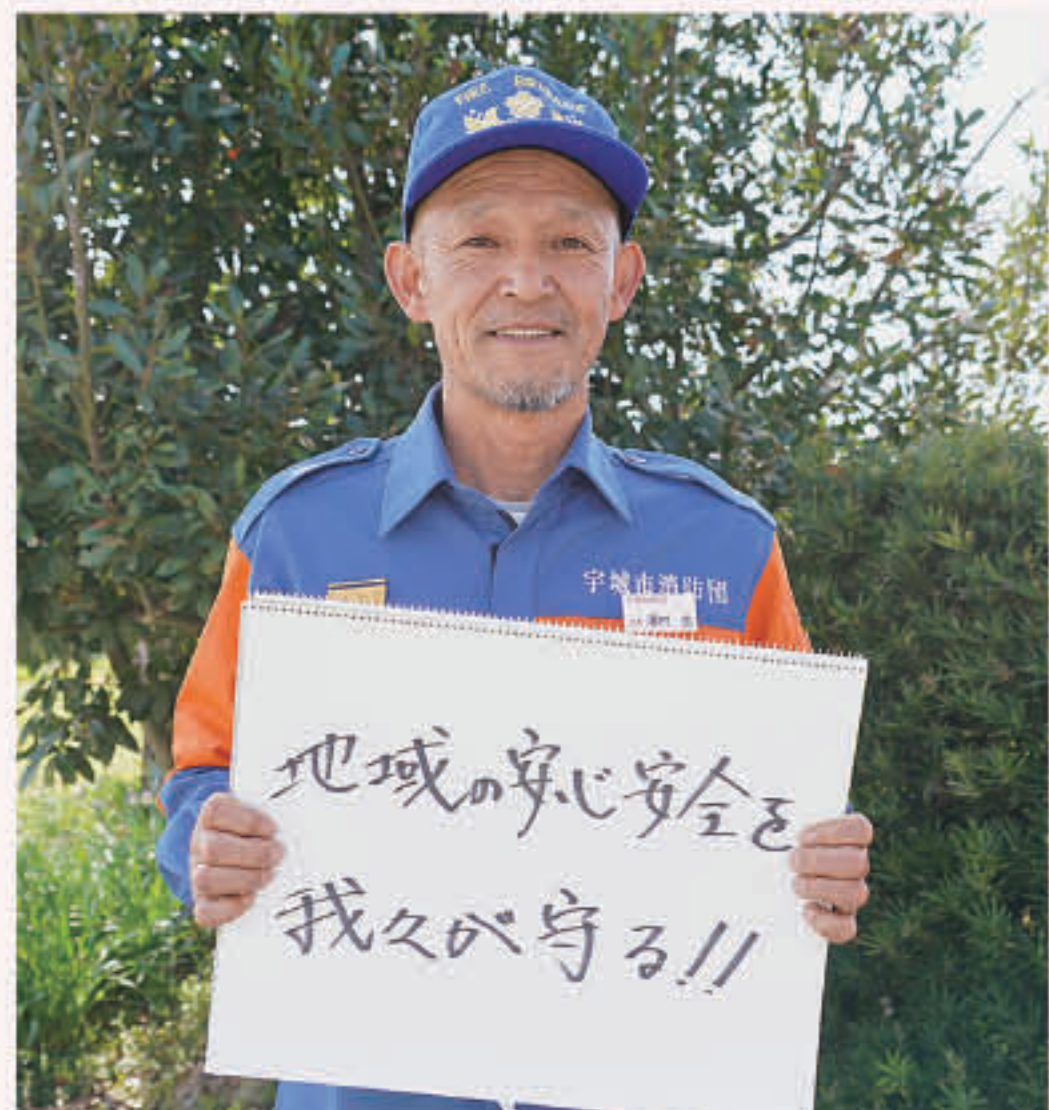 FIRE BRIGADE
宇城市消防団
地域の安心安全を
我々が守る!!